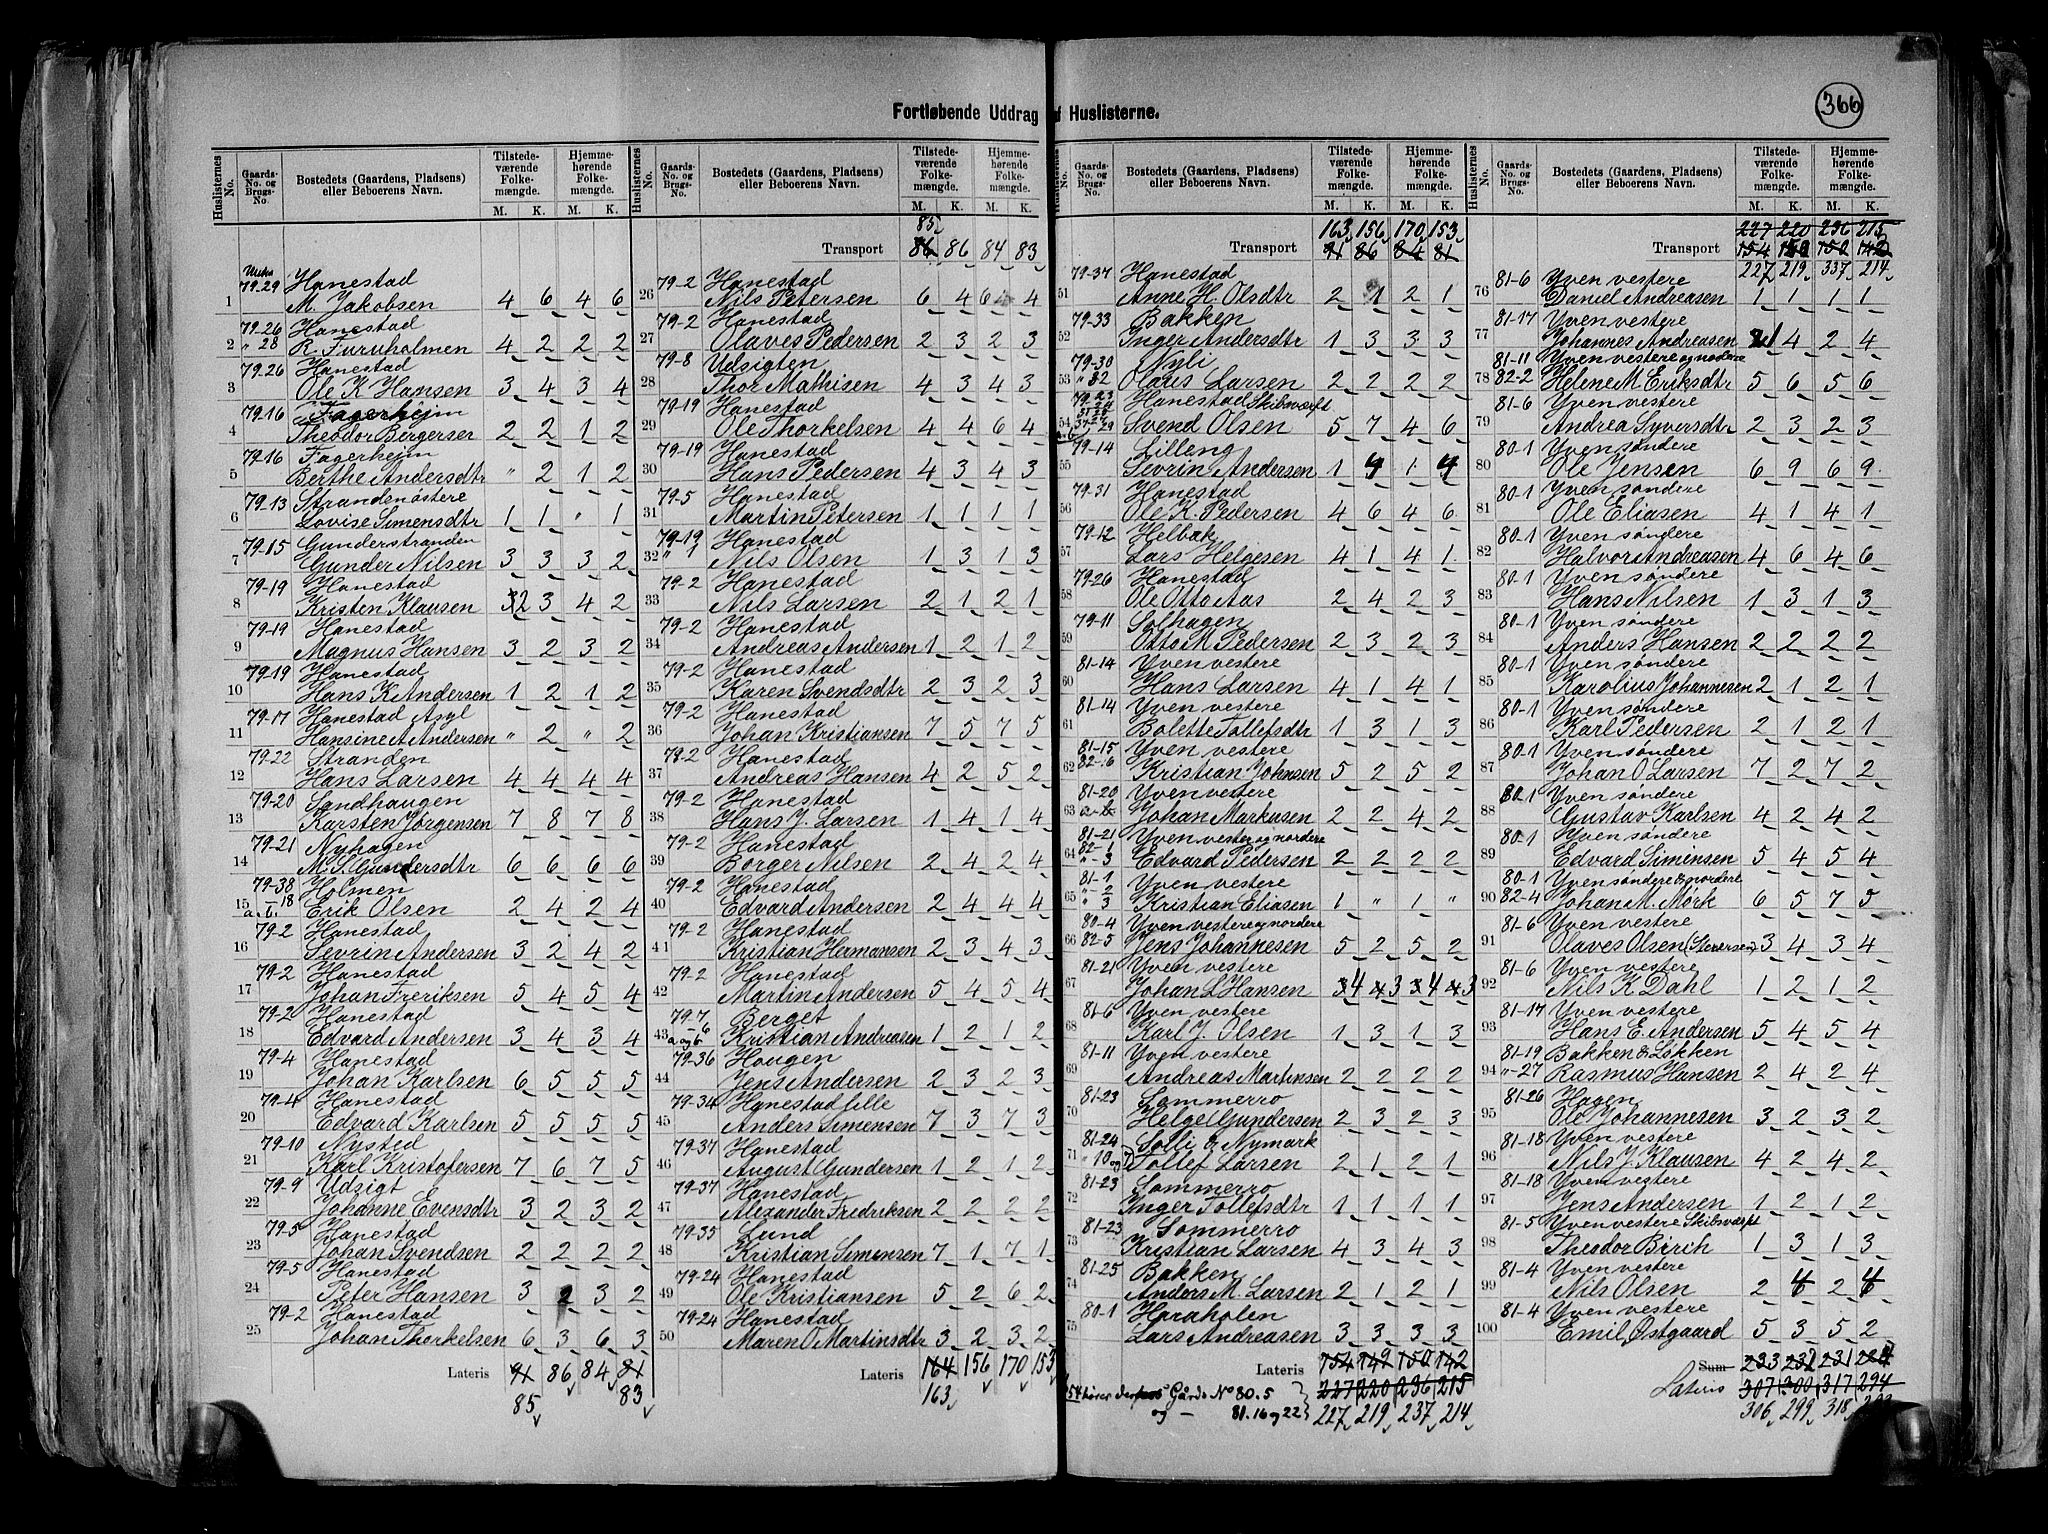 366
Fortløbende Uddrag af Huslisterne.
Huslisternes No.
Gaards-No. og Brugs-No.
Bostedets (Gaardens, Pladsens) eller Beboerens Navn.
Tilstedeværende Folkemængde.
Hjemmehørende Folkemængde.
M. K. M. K.
79-29 Hanestad
1 M. Jakobsen 4 6 4 6
79-26 Hanestad
2 " 28 R. Furuholmen 4 2 2 2
79-26 Hanestad
3 Ole K Hansen 3 4 3 4
79-16 Fagerhejm
4 Theodor Bergersen 2 2 1 2
79-16 Fagerhejm
5 Berthe Andersdtr " 2 1 2
79-13 Stranden østere
6 Lovise Simensdtr 1 1 " 1
79-15 Gunderstranden
7 Gunder Nilsen 3 3 3 2
79-19 Hanestad
8 Kristen Klausen 2 3 4 2
79-19 Hanestad
9 Magnus Hansen 3 2 3 2
79-19 Hanestad
10 Hans K Andersen 1 2 1 2
79-17 Hanestad Asyl
11 Hansine A Andersen " 2 " 2
79-22 Stranden
12 Hans Larsen 4 4 4 4
79-20 Sandhaugen
13 Karsten Jørgensen 7 8 7 8
79-21 Nyhagen
14 M. S. Gundersdtr 6 6 6 6
79-38 Holmen
15 a.b. -18 Erik Olsen 2 4 2 4
79-2 Hanestad
16 Sevrin Andersen 3 2 4 2
79-2 Hanestad
17 Johan Freriksen 5 4 5 4
79-2 Hanestad
18 Edvard Andersen 3 4 3 4
79-4 Hanestad
19 Johan Karlsen 6 5 5 5
79-4 Hanestad
20 Edvard Karlsen 5 5 5 5
79-10 Nysted
21 Karl Kristofersen 7 6 7 5
79-9 Udsigt
22 Johanne Evensdtr 3 2 3 2
79-5 Hanestad
23 Johan Svendsen 2 2 2 2
79-5 Hanestad
24 Peter Hansen 3 2 3 2
79-2 Hanestad
25 Johan Thorkelsen 6 3 6 3
Lateris 91 86 84 81
85 83
Huslisternes No.
Gaards-No. og Brugs-No.
Bostedets (Gaardens, Pladsens) eller Beboerens Navn.
Tilstedeværende Folkemængde.
Hjemmehørende Folkemængde.
M. K. M. K.
85
Transport 86 86 84 83
79-2 Hanestad
26 Nils Petersen 6 4 6 4
79-2 Hanestad
27 Olaves Pedersen 2 3 2 3
79-8 Udsigten
28 Thor Mathisen 4 3 4 3
79-19 Hanestad
29 Ole Thorkelsen 4 4 6 4
79-19 Hanestad
30 Hans Pedersen 4 3 4 3
79-5 Hanestad
31 Martin Petersen 1 1 1 1
79-19 Hanestad
32 " 1 Nils Olsen 1 3 1 3
79-2 Hanestad
33 Nils Larsen 2 1 2 1
79-2 Hanestad
34 Andreas Andersen 1 2 1 2
79-2 Hanestad
35 Karen Svendsdtr 2 3 2 3
79-2 Hanestad
36 Johan Kristiansen 7 5 7 5
79-2 Hanestad
37 Andreas Hansen 4 2 5 2
79-2 Hanestad
38 Hans J. Larsen 1 4 1 4
79-2 Hanestad
39 Borger Nilsen 2 4 2 4
79-2 Hanestad
40 Edvard Andersen 2 4 4 4
79-2 Hanestad
41 Kristian Hermansen 2 3 4 3
79-2 Hanestad
42 Martin Andersen 5 4 5 4
79-7 Berget
43 -6 a og b Kristian Andreasen 1 2 1 2
79-36 Haugen
44 Jens Andersen 2 3 2 3
79-34 Hanestad lille
45 Anders Simensen 7 3 7 3
79-37 Hanestad
46 August Gundersen 1 2 1 2
79-37 Hanestad
47 Alexander Fredriksen 2 2 2 2
79-35 Lund
48 Kristian Simensen 7 1 7 1
79-24 Hanestad
49 Ole Kristiansen 5 2 6 2
79-24 Hanestad
50 Maren O Martinsdtr 3 2 3 2
Lateris 164 156 170 153
163
Huslisternes No.
Gaards-No. og Brugs-No.
Bostedets (Gaardens, Pladsens) eller Beboerens Navn.
Tilstedeværende Folkemængde.
Hjemmehørende Folkemængde.
M. K. M. K.
163 156 170 153
Transport 91 86 84 81
79-37 Hanestad
51 Anne H. Olsdtr 2 1 2 1
79-33 Bakken
52 Inger Andersdtr 1 3 3 3
79-30 Nyli
53 " 32 Olaus Larsen 2 2 2 2
79-23 Hanestad Skibsværft
54 Svend Olsen 5 7 4 6
79-14 Lilleng
55 Sevrin Andersen 1 4 1 4
79-31 Hanestad
56 Ole K. Pedersen 4 6 4 6
79-12 Helbæk
57 Lars Helgesen 4 1 4 1
79-26 Hanestad
58 Ole Otto Aas 2 4 2 3
79-11 Solhagen
59 Otto M Pedersen 2 3 2 3
81-14 Yven vestere
60 Hans Larsen 4 1 4 1
81-14 Yven vestere
61 Bolette Tollefsdtr 1 3 1 3
81-15 Yven vestere
62 82-6 Kristian Johnsen 5 2 5 2
81-20 Yven vestere
63 a-b Johan Markusen 2 2 4 2
81-21 Yven vester og nordere
64 82-1 " -3 Edvard Pedersen 2 2 2 2
81-1 Yven vestere
65 " 2 " 3 Kristian Eliasen 1 " 1 "
80-4 Yven vestere og nordere
66 82-5 Jens Johannesen 5 2 5 2
81-21 Yven vestere
67 Johan L Hansen 4 3 4 3
81-6 Yven vestere
68 Karl J. Olsen 1 3 1 3
81-11 Yven vestere
69 Andreas Martinsen 2 2 2 2
81-23 Sommerro
70 Helge Gundersen 2 3 2 3
81-24 Solli & Nymark
71 " 10 og 7 Tollef Larsen 2 1 2 1
81-23 Sommerro
72 Inger Tollefsdtr 1 1 1 1
81-23 Sommerro
73 Kristian Larsen 4 3 4 3
81-25 Bakken
74 Anders M. Larsen 2 1 2 1
80-1 Haraholen
75 Lars Andreasen 3 3 3 3
Lateris 154 149 150 142
227 220 236 215
54 hører Gårds No 80.5
og — 81.16 og 22
227 219 237 214
Huslisternes No.
Gaards-No. og Brugs-No.
Bostedets (Gaardens, Pladsens) eller Beboerens Navn.
Tilstedeværende Folkemængde.
Hjemmehørende Folkemængde.
M. K. M. K.
227 220 236 215
Transport 154 150 142
227 219 337 214
81-6 Yven vestere
76 Daniel Andreasen 1 1 1 1
81-17 Yven vestere
77 Johannes Andreasen 1 4 2 4
81-11 Yven vestere og nordere
78 82-2 Helene M Eriksdtr 5 6 5 6
81-6 Yven vestere
79 Andrea Syversdtr 2 3 2 3
80-1 Yven søndere
80 Ole Jensen 6 9 6 9
80-1 Yven søndere
81 Ole Eliasen 4 1 4 1
80-1 Yven søndere
82 Halvor Andreasen 4 6 4 6
80-1 Yven søndere
83 Hans Nilsen 1 3 1 3
80-1 Yven søndere
84 Anders Hansen 2 2 2 2
80-1 Yven søndere
85 Karolius Johannesen 2 1 2 1
80-1 Yven søndere
86 Karl Pedersen 2 1 2 1
80-1 Yven søndere
87 Johan O Larsen 7 2 7 2
80-1 Yven søndere
88 Gustav Karlsen 4 2 4 2
80-1 Yven søndere
89 Edvard Simensen 5 4 5 4
80-1 Yven søndere & nordere
90 82-4 Johan M. Mørk 6 5 7 5
81-6 Yven vestere
91 Olaves Olsen 3 4 3 4
81-6 Yven vestere
92 Nils K Dahl 1 2 1 2
81-17 Yven vestere
93 Hans E. Andersen 5 4 5 4
81-19 Bakken & Løkken
94 " -27 Rasmus Hansen 2 4 2 4
81-26 Hagen
95 Ole Johannesen 3 2 3 2
81-18 Yven vestere
96 Nils J. Klausen 4 2 4 2
81-18 Yven vestere
97 Jens Andersen 1 2 1 2
81-5 Yven vestere Skibsværft
98 Theodor Birch 1 3 1 3
81-4 Yven vestere
99 Nils Olsen 2 4 2 4
81-4 Yven vestere
100 Emil Østgaard 5 3 5 2
Sum 233 231
Lateris 307 300 317 294
306 299 318